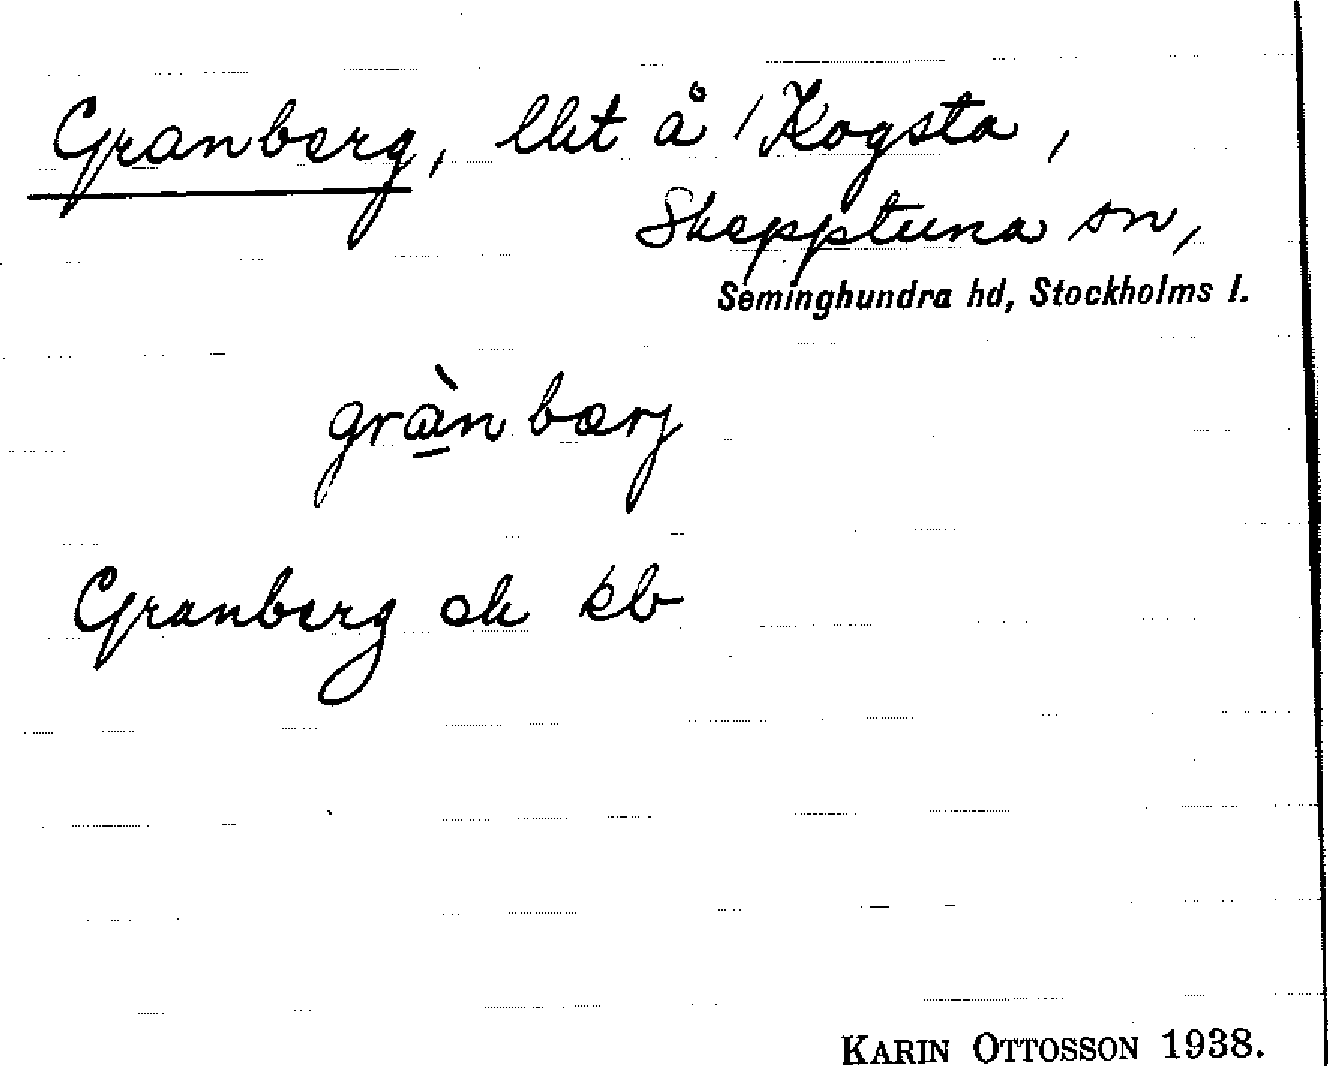 Granberg, llit å Kogsta,
Skepptuna sn,
Seminghundra hd, Stockholms l.
grànbærj
Granberg ek kb
KARIN OTTOSSON 1938.